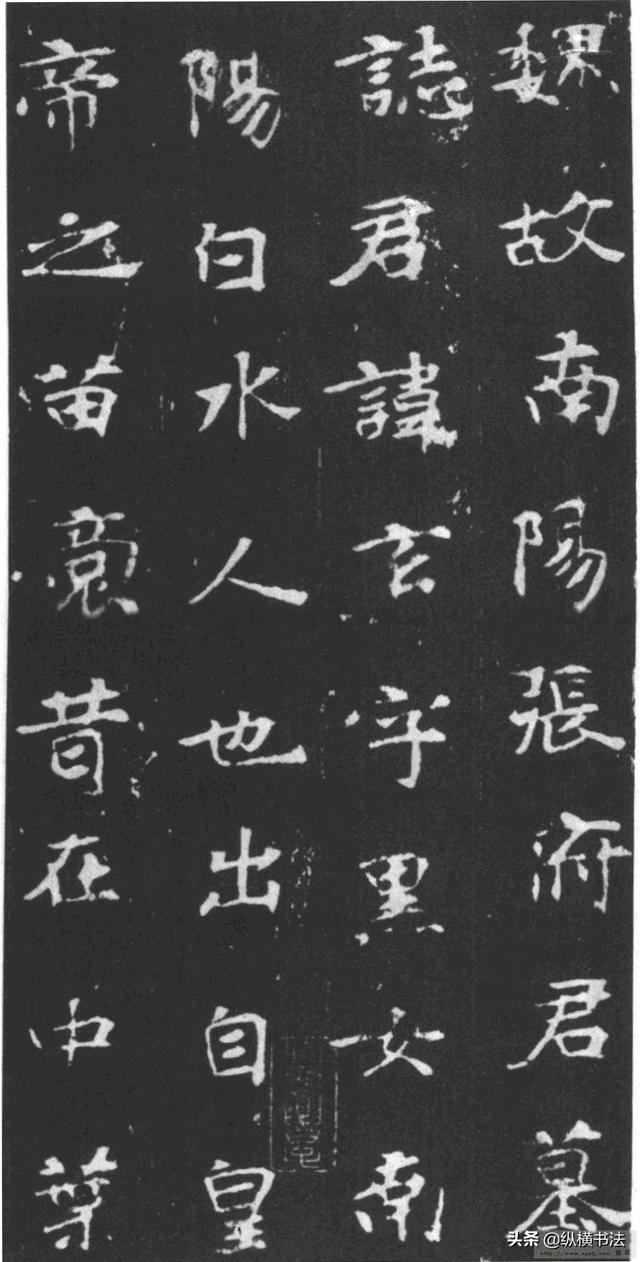 魏故南陽張府君墓
誌君諱玄字黑女南
陽白水人也出自皇
帝之苗裔昔在中葉
头条 @纵横书法